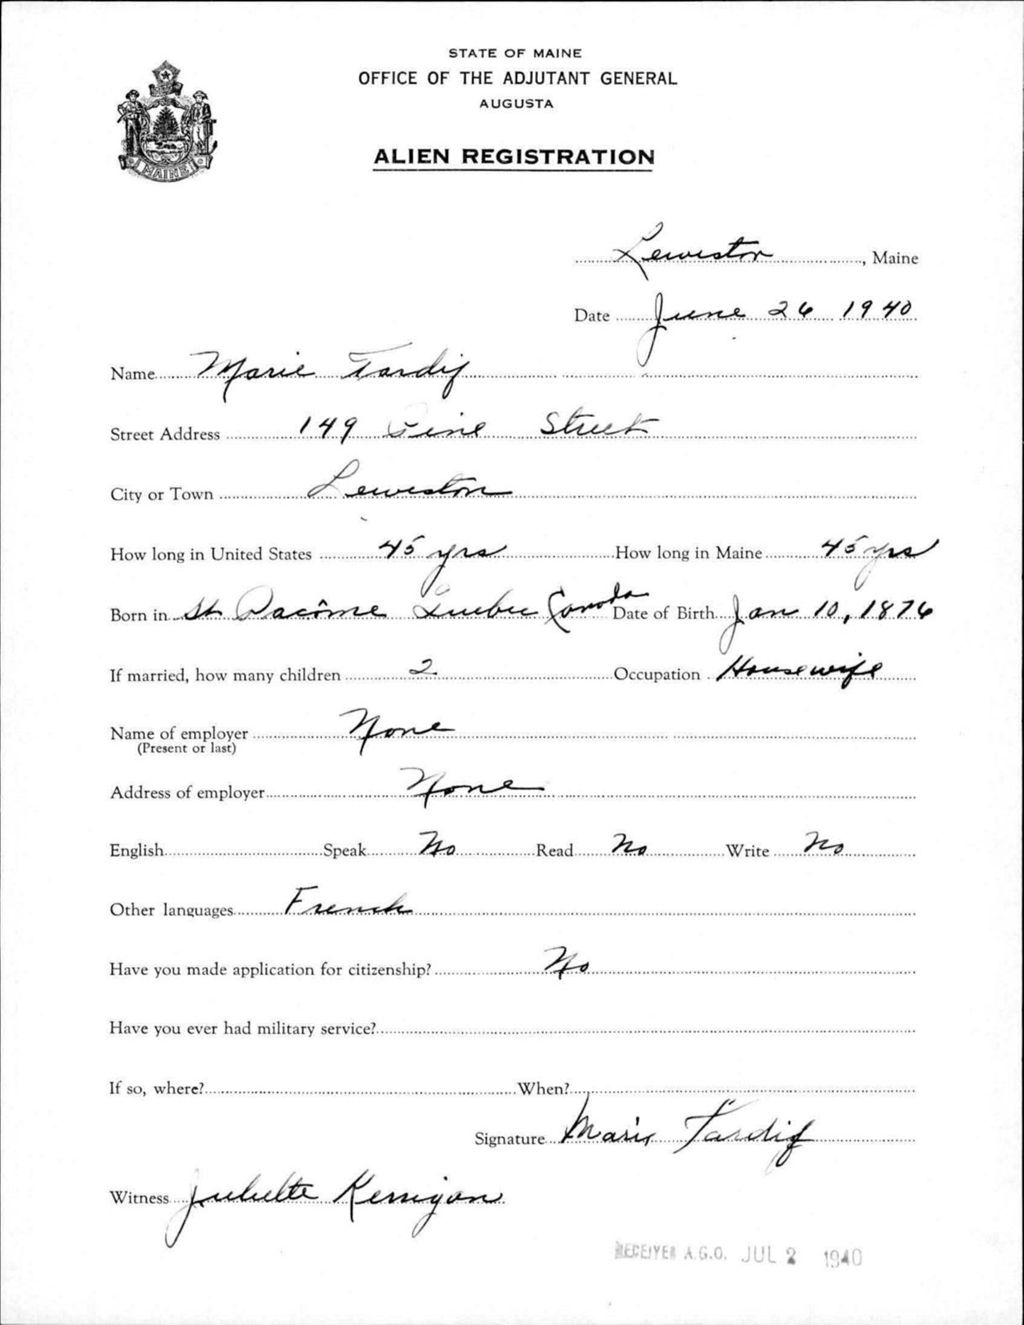 STATE OF MAINE
OFFICE OF THE ADJUTANT GENERAL
AUGUSTA
MAINE
ALIEN REGISTRATION
Lewiston, Maine
Date June 26 1940
Name Marie Tardif
Street Address 149 Pine Street
City or Town Lewiston
How long in United States 45 yrs How long in Maine 45 yrs
Born in St Pacôme Quebec Canada Date of Birth Jan 10, 1876
If married, how many children 2 Occupation Housewife
Name of employer None
(Present or last)
Address of employer None
English Speak No Read No Write No
Other languages French
Have you made application for citizenship? No
Have you ever had military service?
If so, where? When?
Signature Marie Tardif
Witness Juliette Kerrigan
RECEIVED A.G.O. JUL 2 1940